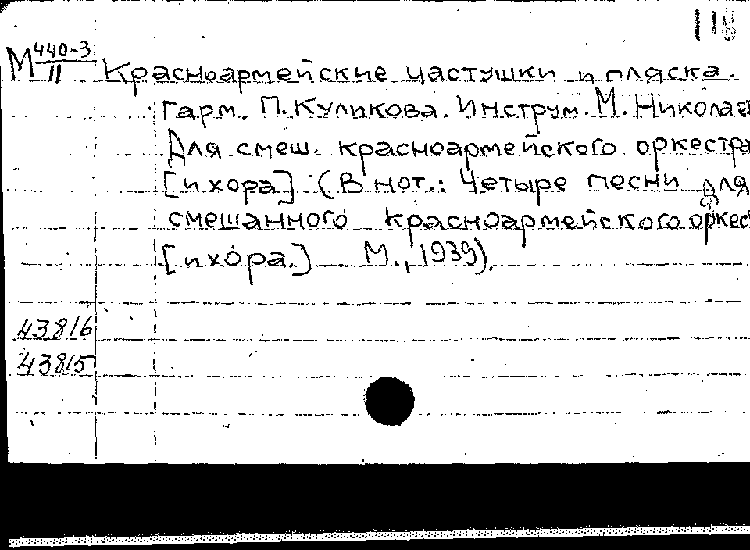 118
М 440-3
II Красноармейские частушки и пляска.
Гарм. П. Куликова. Инструм. М. Николаев
Для смеш. красноармейского оркестра
[и хора] (В нот.: Четыре песни для
смешанного красноармейского оркес
[и хора.] М., 1939).
43816
43815